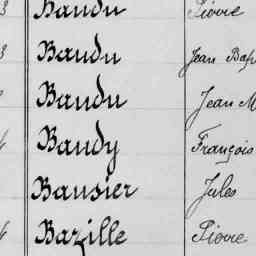 3 Baudu Pierre
3 Baudu Jean Bap
Baudu Jean M
4 Baudy François
Bausier Jules
4 Bazille Pierre